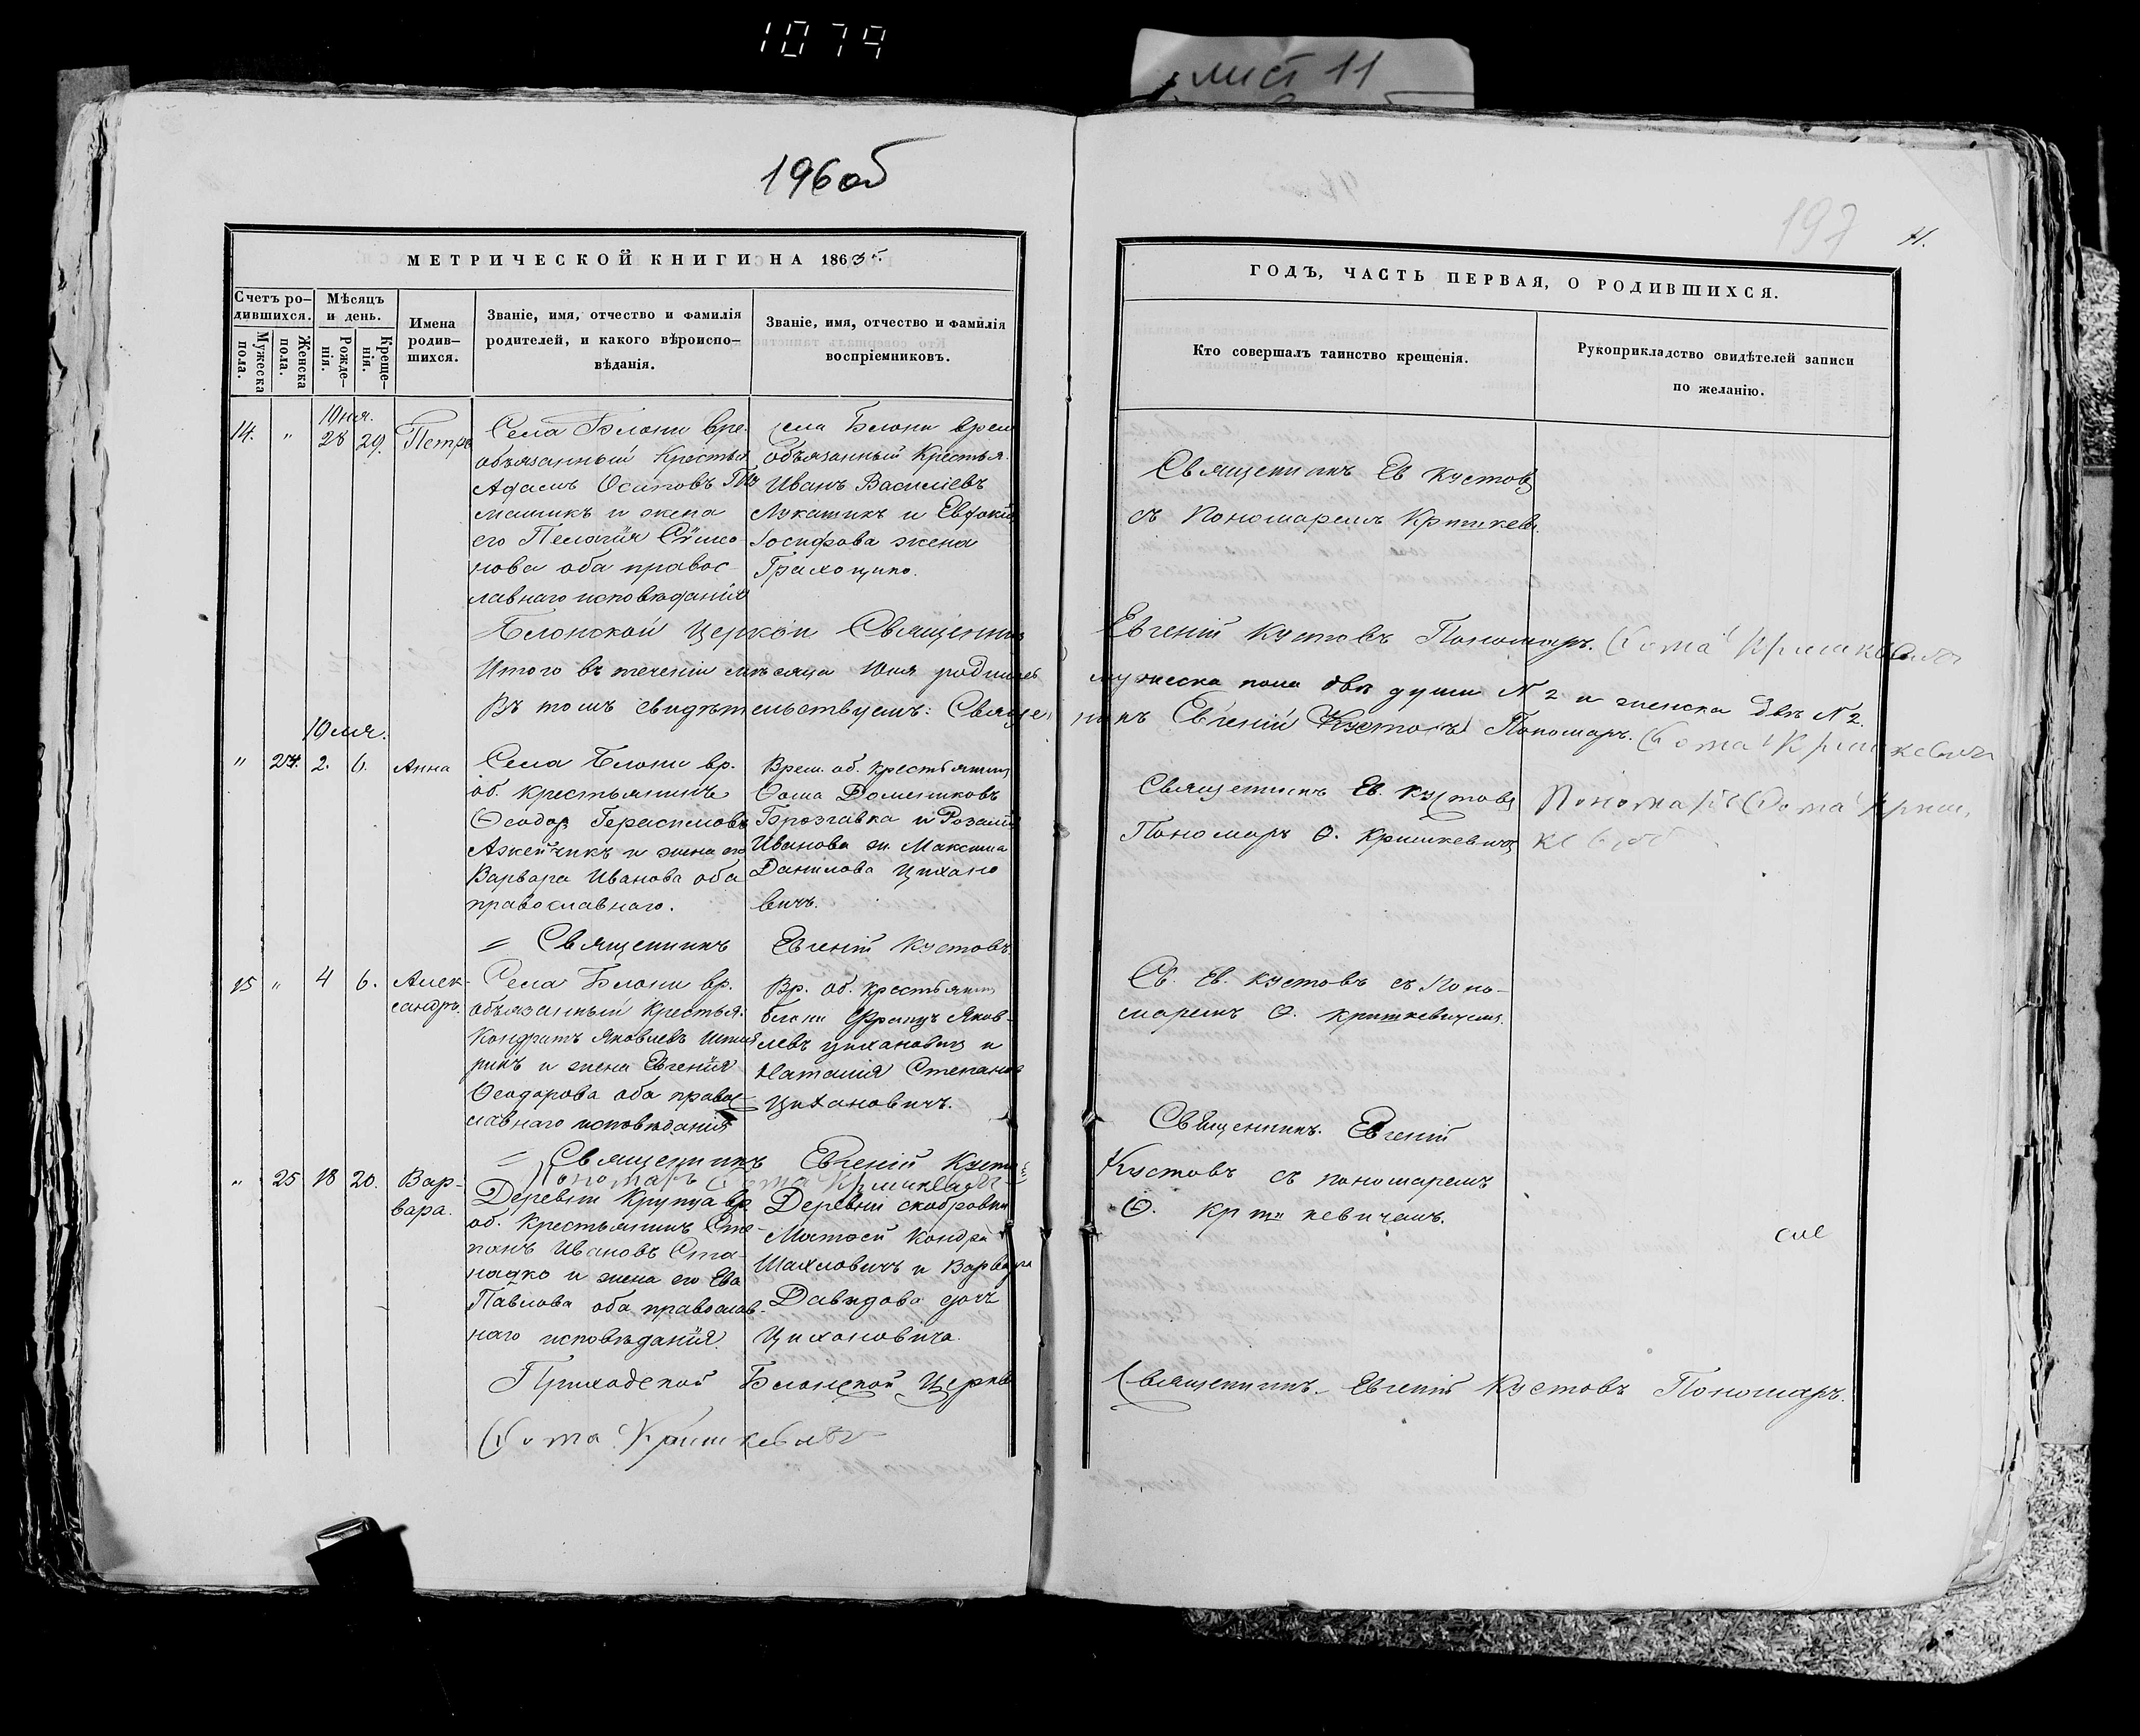 1079
лист 11
196об
197
11.
МЕТРИЧЕСКОЙ КНИГИ НА 1863
Счетъ ро-
дившихся.
Мѣсяцъ
и день.
Мужеска
пола.
Женска
пола.
Рожде-
нія.
Креще-
нія.
Имена
родив-
шихся.
Званіе, имя, отчество и фамилія
родителей, и какого вѣроиспо-
вѣданія.
Званіе, имя, отчество и фамилія
воспріемниковъ.
ГОДЪ, ЧАСТЬ ПЕРВАЯ, О РОДИВШИХСЯ.
Кто совершалъ таинство крещенія.
Рукоприкладство свидѣтелей записи
по желанію.
Юня.
14. " 28 29. Петръ
Села Блони вре.
обязанный Крестья
Адамъ Осиповъ
и жена
его Пелагія Сѵмео
нова оба правос
лавнаго исповѣданія
села Блони врем
обязанный Крестья.
Иванъ Василіевъ
Лукашикъ и Евдокія
Іосифова жена
Священникъ Ев Кустовъ
съ Пономаремъ Кришкев.
Блонской Церкви Священникъ Евгеній Кустовъ Пономарь. Ѳома Кришкевичъ
Итого въ теченіи мѣсяца Юня родилось мужеска пола двѣ души N 2 и женска двѣ N 2.
Въ томъ свидѣтельствуемъ: Священникъ Евгеній Кустовъ Пономарь. Ѳома Кришкевичъ
Юля.
" 24. 2. 6. Анна
Села Блони вр.
об. крестьянинъ
Ѳеодоръ Герасимовъ
Ажейчикъ и жена его
Варвара Иванова оба
православнаго.
Врем. об. крестьянинъ
Ѳома Доминиковъ
и Розалія
Иванова ж. Максима
Данилова Цихано
вичъ.
Священникъ Ев. Кустовъ
Пономарь Ѳ. Кришкевичъ
Пономарь Ѳома Криш.
кевичъ
= Священникъ Евгеній Кустовъ.
15 " 4 6. Алек-
сандръ.
Села Блони вр.
обязанный Крестья.
Кондратъ Яковлевъ
и жена Евгенія
Ѳеодорова оба правос
лавнаго исповѣданія
Вр. об. крестьянинъ
Блони Францъ Яков-
левъ Цихановичъ и
Наталія Степанова
Цихановичъ.
Св. Ев. Кустовъ съ Поно-
маремъ Ѳ. Кришкевичемъ.
= Священникъ Евгеній Кустовъ
Пономарь Ѳома Кришкевичъ
" 25 18 20. Вар-
вара.
Деревни Крупка вр.
об. Крестьянинъ Сте-
панъ Ивановъ Ста-
надко и жена его Ева
Павлова оба православ-
наго исповѣданія.
Деревни
Матѳей Кондра
Шахловичъ и Варвара
Давидова дочь
Цихановича.
Священникъ. Евгеній
Кустовъ съ пономаремъ
Ѳ. Кришкевичемъ.
Приходской Блонской Церкви Священникъ. Евгеній Кустовъ Пономарь.
Ѳома Кришкевичъ